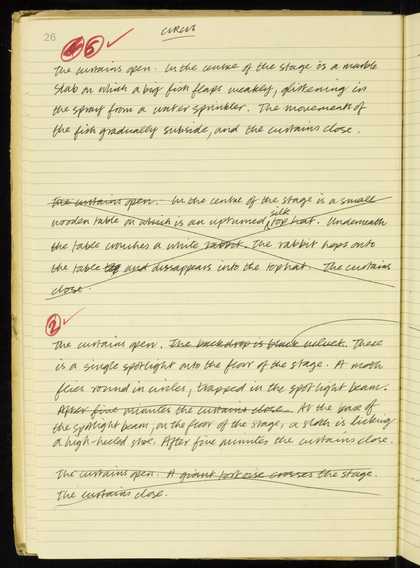 26
CIRCUS
5
The curtains open. In the centre of the stage is a marble
slab on which a big fish flaps weakly, glistening in
the spray from a water sprinkler. The movements of
the fish gradually subside, and the curtains close.
The curtains open. In the centre of the stage is a small
wooden table on which is an upturned silk top hat. Underneath
the table crouches a white rabbit. The rabbit hops onto
the table and dissappears into the top hat. The curtains
close.
2
The curtains open. The backdrop is black velvet. There
is a single spotlight onto the floor of the stage. A moth
flies round in circles, trapped in the spotlight beam.
After five minutes the curtains close. At the base of
the spotlight beam, on the floor of the stage, a sloth is licking
a high-heeled shoe. After five minutes the curtains close.
The curtains open. A giant tortoise crosses the stage.
The curtains close.